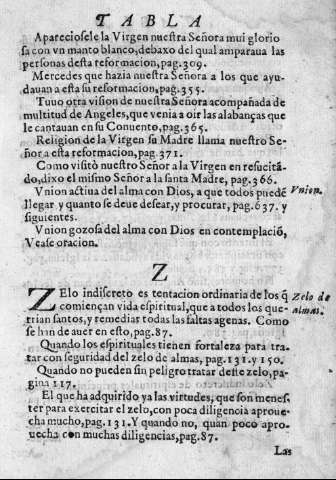 TABLA
Apareciosele la Virgen nuestra Señora mui glorio
sa con vn manto blanco, debaxo del qual amparaua las
personas desta reformacion, pag. 309.
Mercedes que hazia nuestra Señora a los que ayu-
dauan a esta su reformacion, pag. 355.
Tuuo otra vision de nuestra Señora acompañada de
multitud de Angeles, que venia a oir las alabanças que
le cantauan en su Conuento, pag. 365.
Religion de la Virgen su Madre llama nuestro Se-
ñor a esta reformacion, pag. 371.
Como visitò nuestro Señor a la Virgen en resucitã-
do, dixo el mismo Señor a la santa Madre, pag. 366.
Vnion actiua del alma con Dios, a que todos puedẽ
llegar y quanto se deue desear, y procurar, pag. 637. y
siguientes.
Vnion.
Vnion gozosa del alma con Dios en contemplaciõ,
Vease oracion.
Z
ZElo indiscreto es tentacion ordinaria de los q̃
comiençan vida espiritual, que a todos los que-
trian santos, y remediar todas las faltas agenas. Como
se han de auer en esto, pag. 87.
Zelo de
almas.
Quando los espirituales tienen fortaleza para tra-
tar con seguridad del zelo de almas, pag. 131. y 150.
Quando no pueden sin peligro tratar deste zelo, pa-
gina 117.
El que ha adquirido ya las virtudes, que son menes-
ter para exercitar el zelo, con poca diligencia aproue-
cha mucho, pag. 131. Y quando no, quan poco apro-
uecha con muchas diligencias, pag. 87.
Las